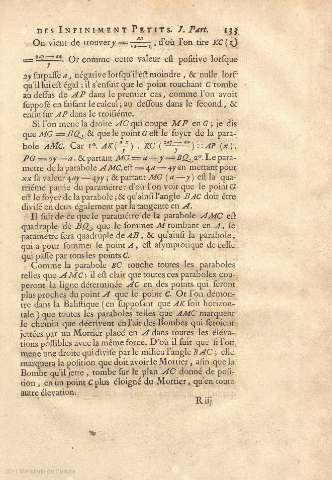 DES INFINIMENT PETITS. I. Part. 133
On vient de trouver y = , d'où l'on tire KC (z)
= . Or comme cette valeur est positive lorsque
2y surpasse a, négative lorsqu'il est moindre, & nulle lorsqu'il
lui est égal; il s'ensuit que le point touchant C tombe
au dessus de AP dans le premier cas, comme l'on avoit
supposé en faisant le calcul; au dessous dans le second, &
enfin sur AP dans le troisiéme.
Si l'on mene la droite AC qui coupe MP en G; je dis
que MG = BQ, & que le point G est le foyer de la parabole
AMC. Car 1°. AK . KC :: AP (x).
PG = 2y — a. & partant MG = a — y = BQ. 2°. Le parametre
de la parabole AMC, est = 4a — 4y en mettant pour
xx sa valeur 4ay — 4yy; & partant MG (a — y) est la quatriéme
partie du parametre: d'où l'on voit que le point G
est le foyer de la parabole; & qu'ainsi l'angle BAC doit être
divisé en deux également par la tangente en A.
Il suit de ce que le parametre de la parabole AMC est
quadruple de BQ, que le sommet M tombant en A, le
parametre sera quadruple de AB, & qu'ainsi la parabole,
qui a pour sommet le point A, est asymptotique de celle
qui passe par tous les points C.
Comme la parabole BC touche toutes les paraboles
telles que AMC; il est clair que toutes ces paraboles couperont
la ligne déterminée AC en des points qui seront
plus proches du point A que le point C. Or l'on démontre
dans la Balistique (en supposant que AK soit horizontale)
que toutes les paraboles telles que AMC marquent
le chemin que décrivent en l'air des Bombes qui seroient
jettées par un Mortier placé en A dans toutes les élevations
possibles avec la même force. D'où il suit que si l'on
mene une droite qui divise par le milieu l'angle BAC; elle
marquera la position que doit avoir le Mortier, afin que la
Bombe qu'il jette, tombe sur le plan AC donné de position,
en un point C plus éloigné du Mortier, qu'en toute
autre élevation.
R iij